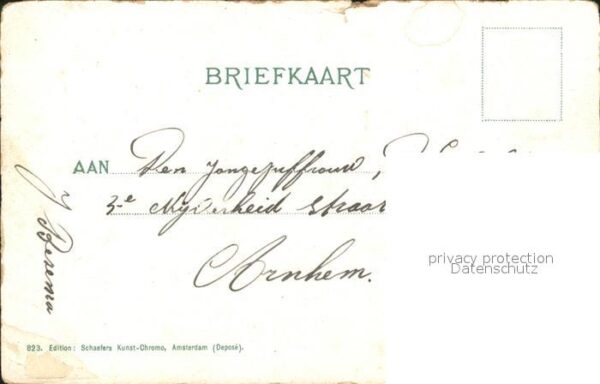 BRIEFKAART
AAN Den Jongejuffrouw,
3e Nijverheid straat
Arnhem.
J Besema
privacy protection
Datenschutz
823. Edition: Schaefers Kunst-Chromo, Amsterdam (Deposé).